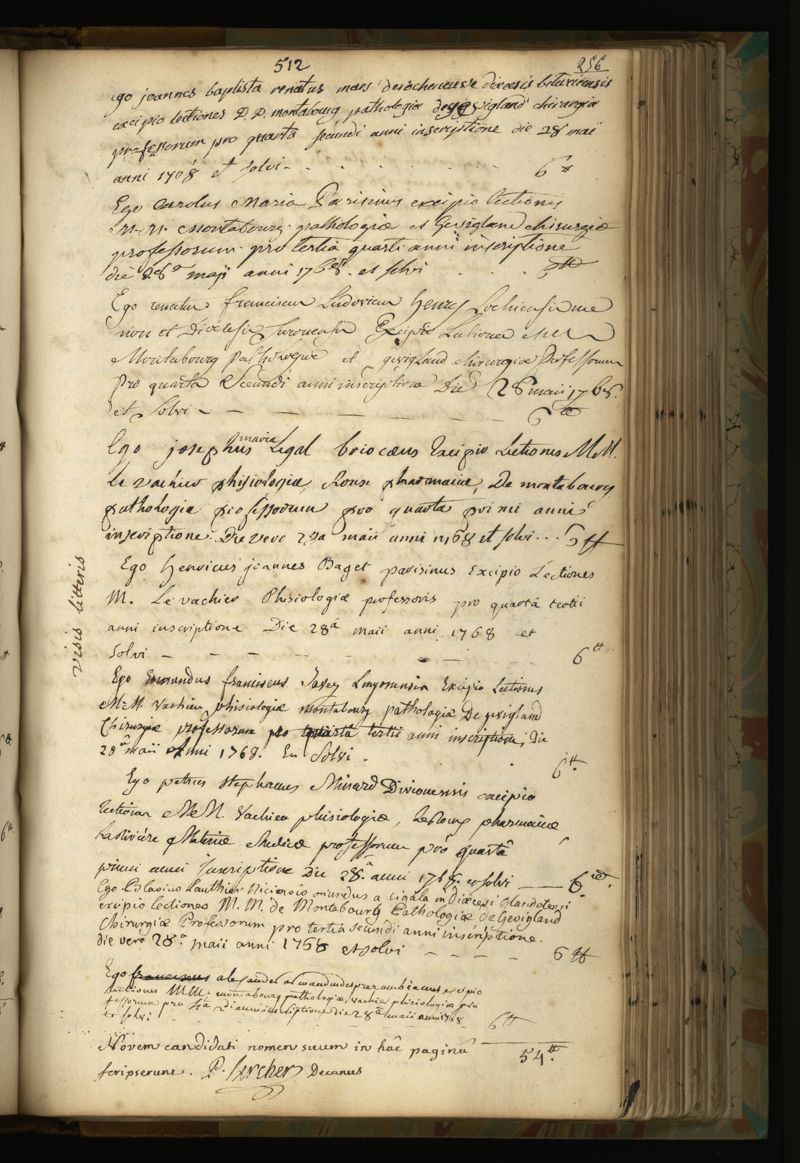 512
256
ego joannes baptista renatus mars derocheneuve dioecesis bituricensis
excipio lectiones D. D. montabourg pathologiæ de gevigland chirurgiæ
professorum pro quarta secundi anni inscriptione die 28 maii
anni 1768 et solvi - . . . . . 6 tt
Ego carolus Maria Parisinus excipio lectiones
M. M. Montabourg pathologiæ et Gevigland chirurgiæ
professorum pro tertia quarti anni inscriptione
die 28a maji anni 1768. et solvi . . . 6 tt
Ego renatus franciscus Ludovicus henry
et Diœcesis Turonensis Excipio Lectiones
Montabourg Pathologiæ et gevigland chirurgiæ Professorum
Pro quarta Secundi anni inscriptione Die 28 maii 1768.
et Solvi - - - - - 6 tt
Ego josephus maria Legal briocæus Excipio Lectiones M. M.
Le vacher phisiologiæ, Roux pharmaciæ, De montabourg
pathologiæ professorum pro quarta primi anni
inscriptione. Die vero 28a maii anni 1768 et solvi . . . 6 tt
visis litteris
Ego henricus joannes Baget parisinus Excipio Lectiones
M. Le vacher Phisiologiæ professoris pro quartâ tertii
anni inscriptione Die 28â maii anni 1768 et
solvi - - - - - 6 tt
Ego franciscus Excipio Lectiones
M. M. Vacher phisiologiæ montabourg pathologiæ De gevigland
Chirurgiæ professorum pro quartâ tertii anni inscriptione, Die
28a maii anni 1768. Et Solvi . . . 6 tt.
Ego petrus stephanus Minard Divionensis excipio
Lectiones M. M. Vacher phisiologiæ, Le Roux pharmaciæ
Lariviére Materiæ Medicæ professorum prô quartâ
primi anni Inscriptione Die 28.a anni 1768. et solvi — 6 tt.
Ego Gauthier a
excipio lectiones M. M. de Montabourg Pathologiæ de Gevigland
Chirurgiæ Professorum pro tertia secundi anni inscriptione.
die vero 28.a maii anni 1768 et solvi - - - - - 6 tt
Ego franciscus alexander ambianus excipio
lectiones MM. montabourg pathologiæ, vacher phisiologiæ pro
fessorum pro 4a anni inscriptione die 28a maii anni 1768
et solvi. 6 tt
Novem candidati nomen suum in hâc paginâ 54 tt.
scripserunt. P. Bercher Decanus